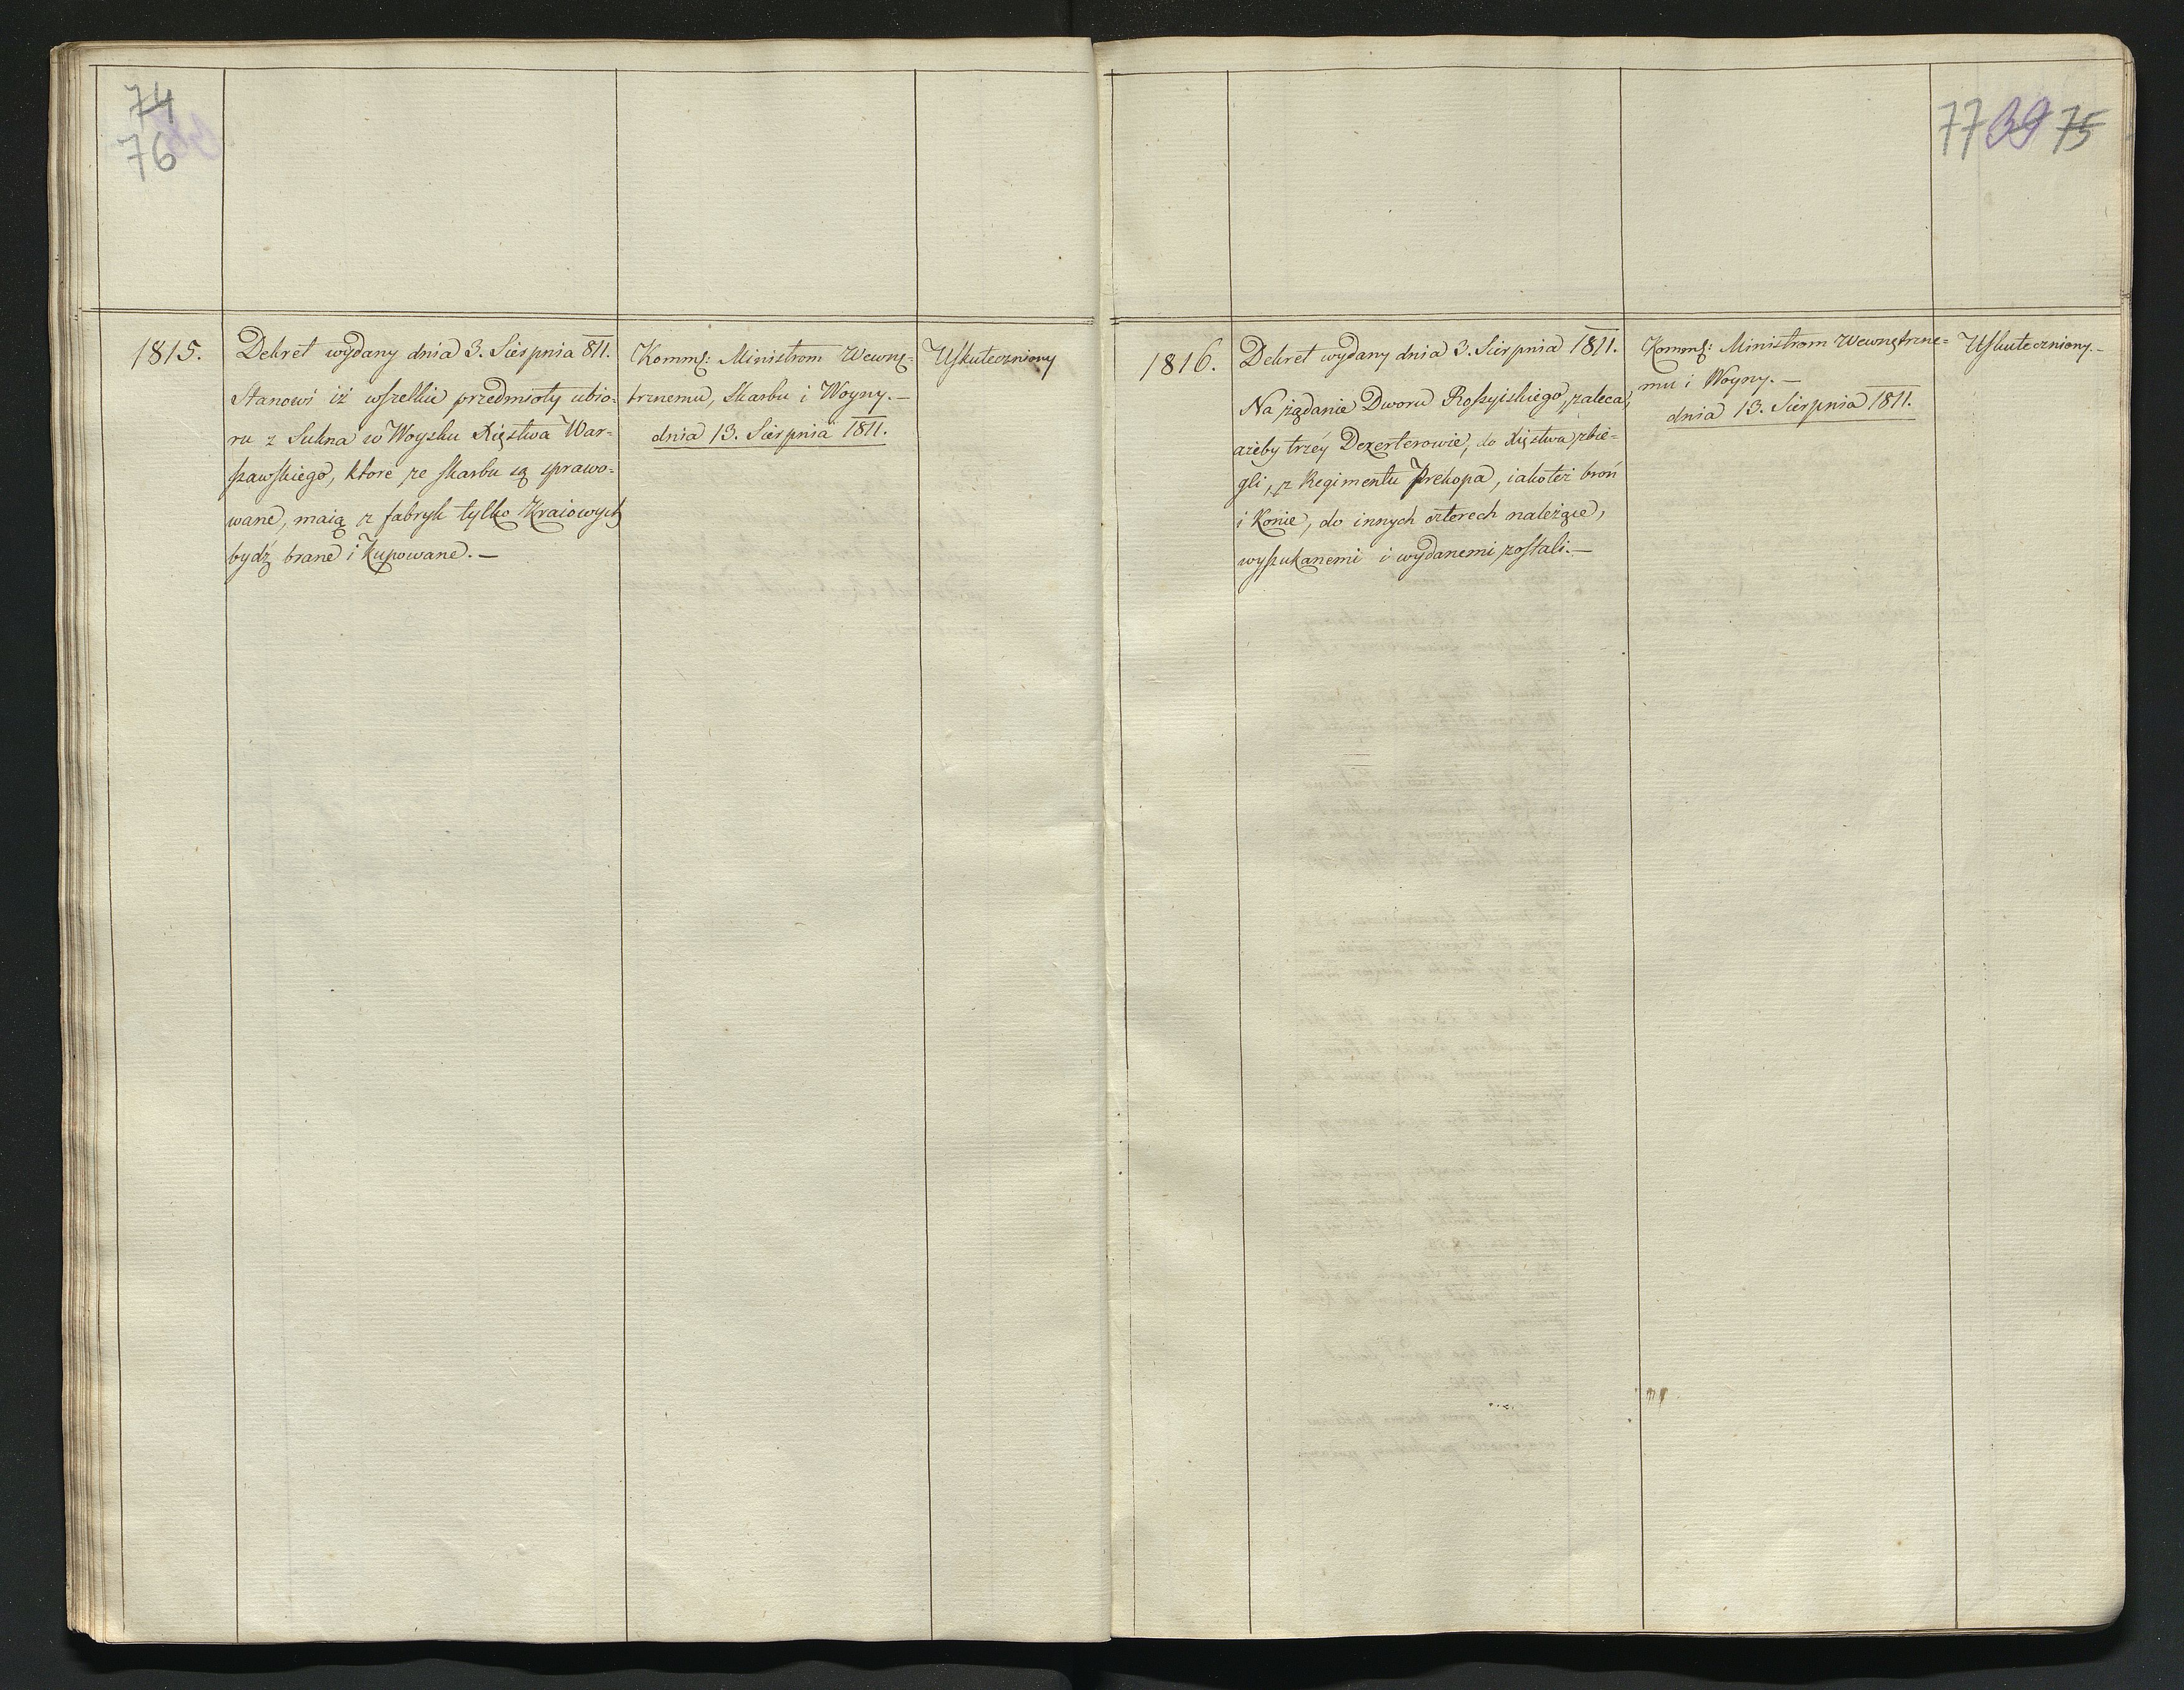 74
76
1815.
Dekret wydany dnia 3. Sierpnia 811.
Stanowi iż wszelkie przedmioty ubio-
ru z Sukna w Woysku Xięstwa War-
szawskiego, ktore ze skarbu są sprawo-
wane, maią z fabryk tylko Kraiowych
bydź brane i kupowane.—
Komms: Ministrom Wewnę-
trznemu, Skarbu i Woyny.—
dnia 13. Sierpnia 1811.
Uskuteczniony
77 39 75
1816.
Dekret wydany dnia 3. Sierpnia 1811.
Na żądanie Dworu Rossyiskiego, zaleca,
ażeby trzéy Dezerterowie, do Xięstwa zbie-
gli, z Regimentu Prekopa, iakoteż broń
i Konie, do innych czterech należące,
wyszukanemi i wydanemi zostali.—
Komms: Ministrom Wewnętrzne-
mu i Woyny.—
dnia 13. Sierpnia 1811.
Uskuteczniony.—